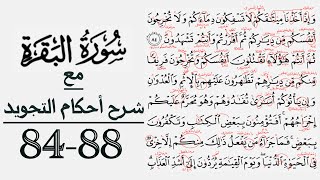 سُورَةُ البَقَرَةِ
مع
شرح أحكام التجويد
84-88
وَإِذْ أَخَذْنَا مِيثَاقَكُمْ لَا تَسْفِكُونَ دِمَاءَكُمْ وَلَا تُخْرِجُونَ
أَنفُسَكُم مِّن دِيَارِكُمْ ثُمَّ أَقْرَرْتُمْ وَأَنتُمْ تَشْهَدُونَ ٨٤
ثُمَّ أَنتُمْ هَٰؤُلَاءِ تَقْتُلُونَ أَنفُسَكُمْ وَتُخْرِجُونَ فَرِيقًا
مِّنكُم مِّن دِيَارِهِمْ تَظَاهَرُونَ عَلَيْهِم بِالْإِثْمِ وَالْعُدْوَانِ
وَإِن يَأْتُوكُمْ أُسَارَىٰ تُفَادُوهُمْ وَهُوَ مُحَرَّمٌ عَلَيْكُمْ
إِخْرَاجُهُمْ أَفَتُؤْمِنُونَ بِبَعْضِ الْكِتَابِ وَتَكْفُرُونَ
بِبَعْضٍ فَمَا جَزَاءُ مَن يَفْعَلُ ذَٰلِكَ مِنكُمْ إِلَّا خِزْيٌ
فِي الْحَيَاةِ الدُّنْيَا وَيَوْمَ الْقِيَامَةِ يُرَدُّونَ إِلَىٰ أَشَدِّ الْعَذَابِ